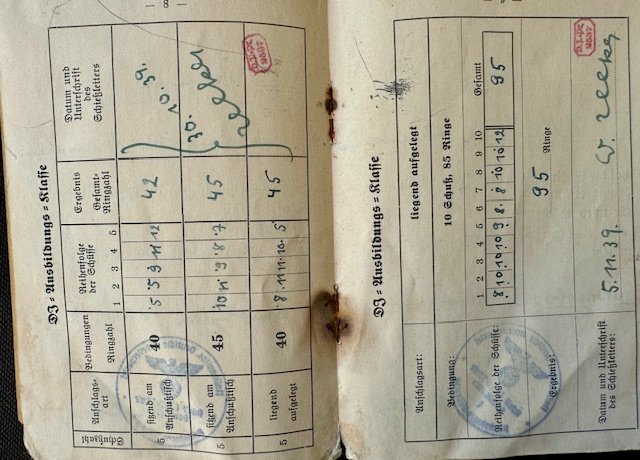 — 8 —
DJ=Ausbildungs=Klasse
Schußzahl Anschlags=art Bedingungen Ringzahl Reihenfolge der Schüsse 1 2 3 4 5 Ergebnis Gesamt=Ringzahl Datum und Unterschrift des Schießleiters
5 sitzend am Anschußtisch 40 5 5 9 11 12 42 30. 10. 39.
5 sitzend am Anschußtisch 45 10 11 9 8 7 45
5 liegend aufgelegt 40 8 11 11 10 5 45
DJ=Ausbildungs=Klasse
Anschlagsart: liegend aufgelegt
Bedingung: 10 Schuß, 85 Ringe
Reihenfolge der Schüsse: 1 2 3 4 5 6 7 8 9 10 Gesamt
8 10 10 10 9 8 8 10 10 12 95
Ergebnis: 95 Ringe
Datum und Unterschrift des Schießleiters: 5. 11. 39.